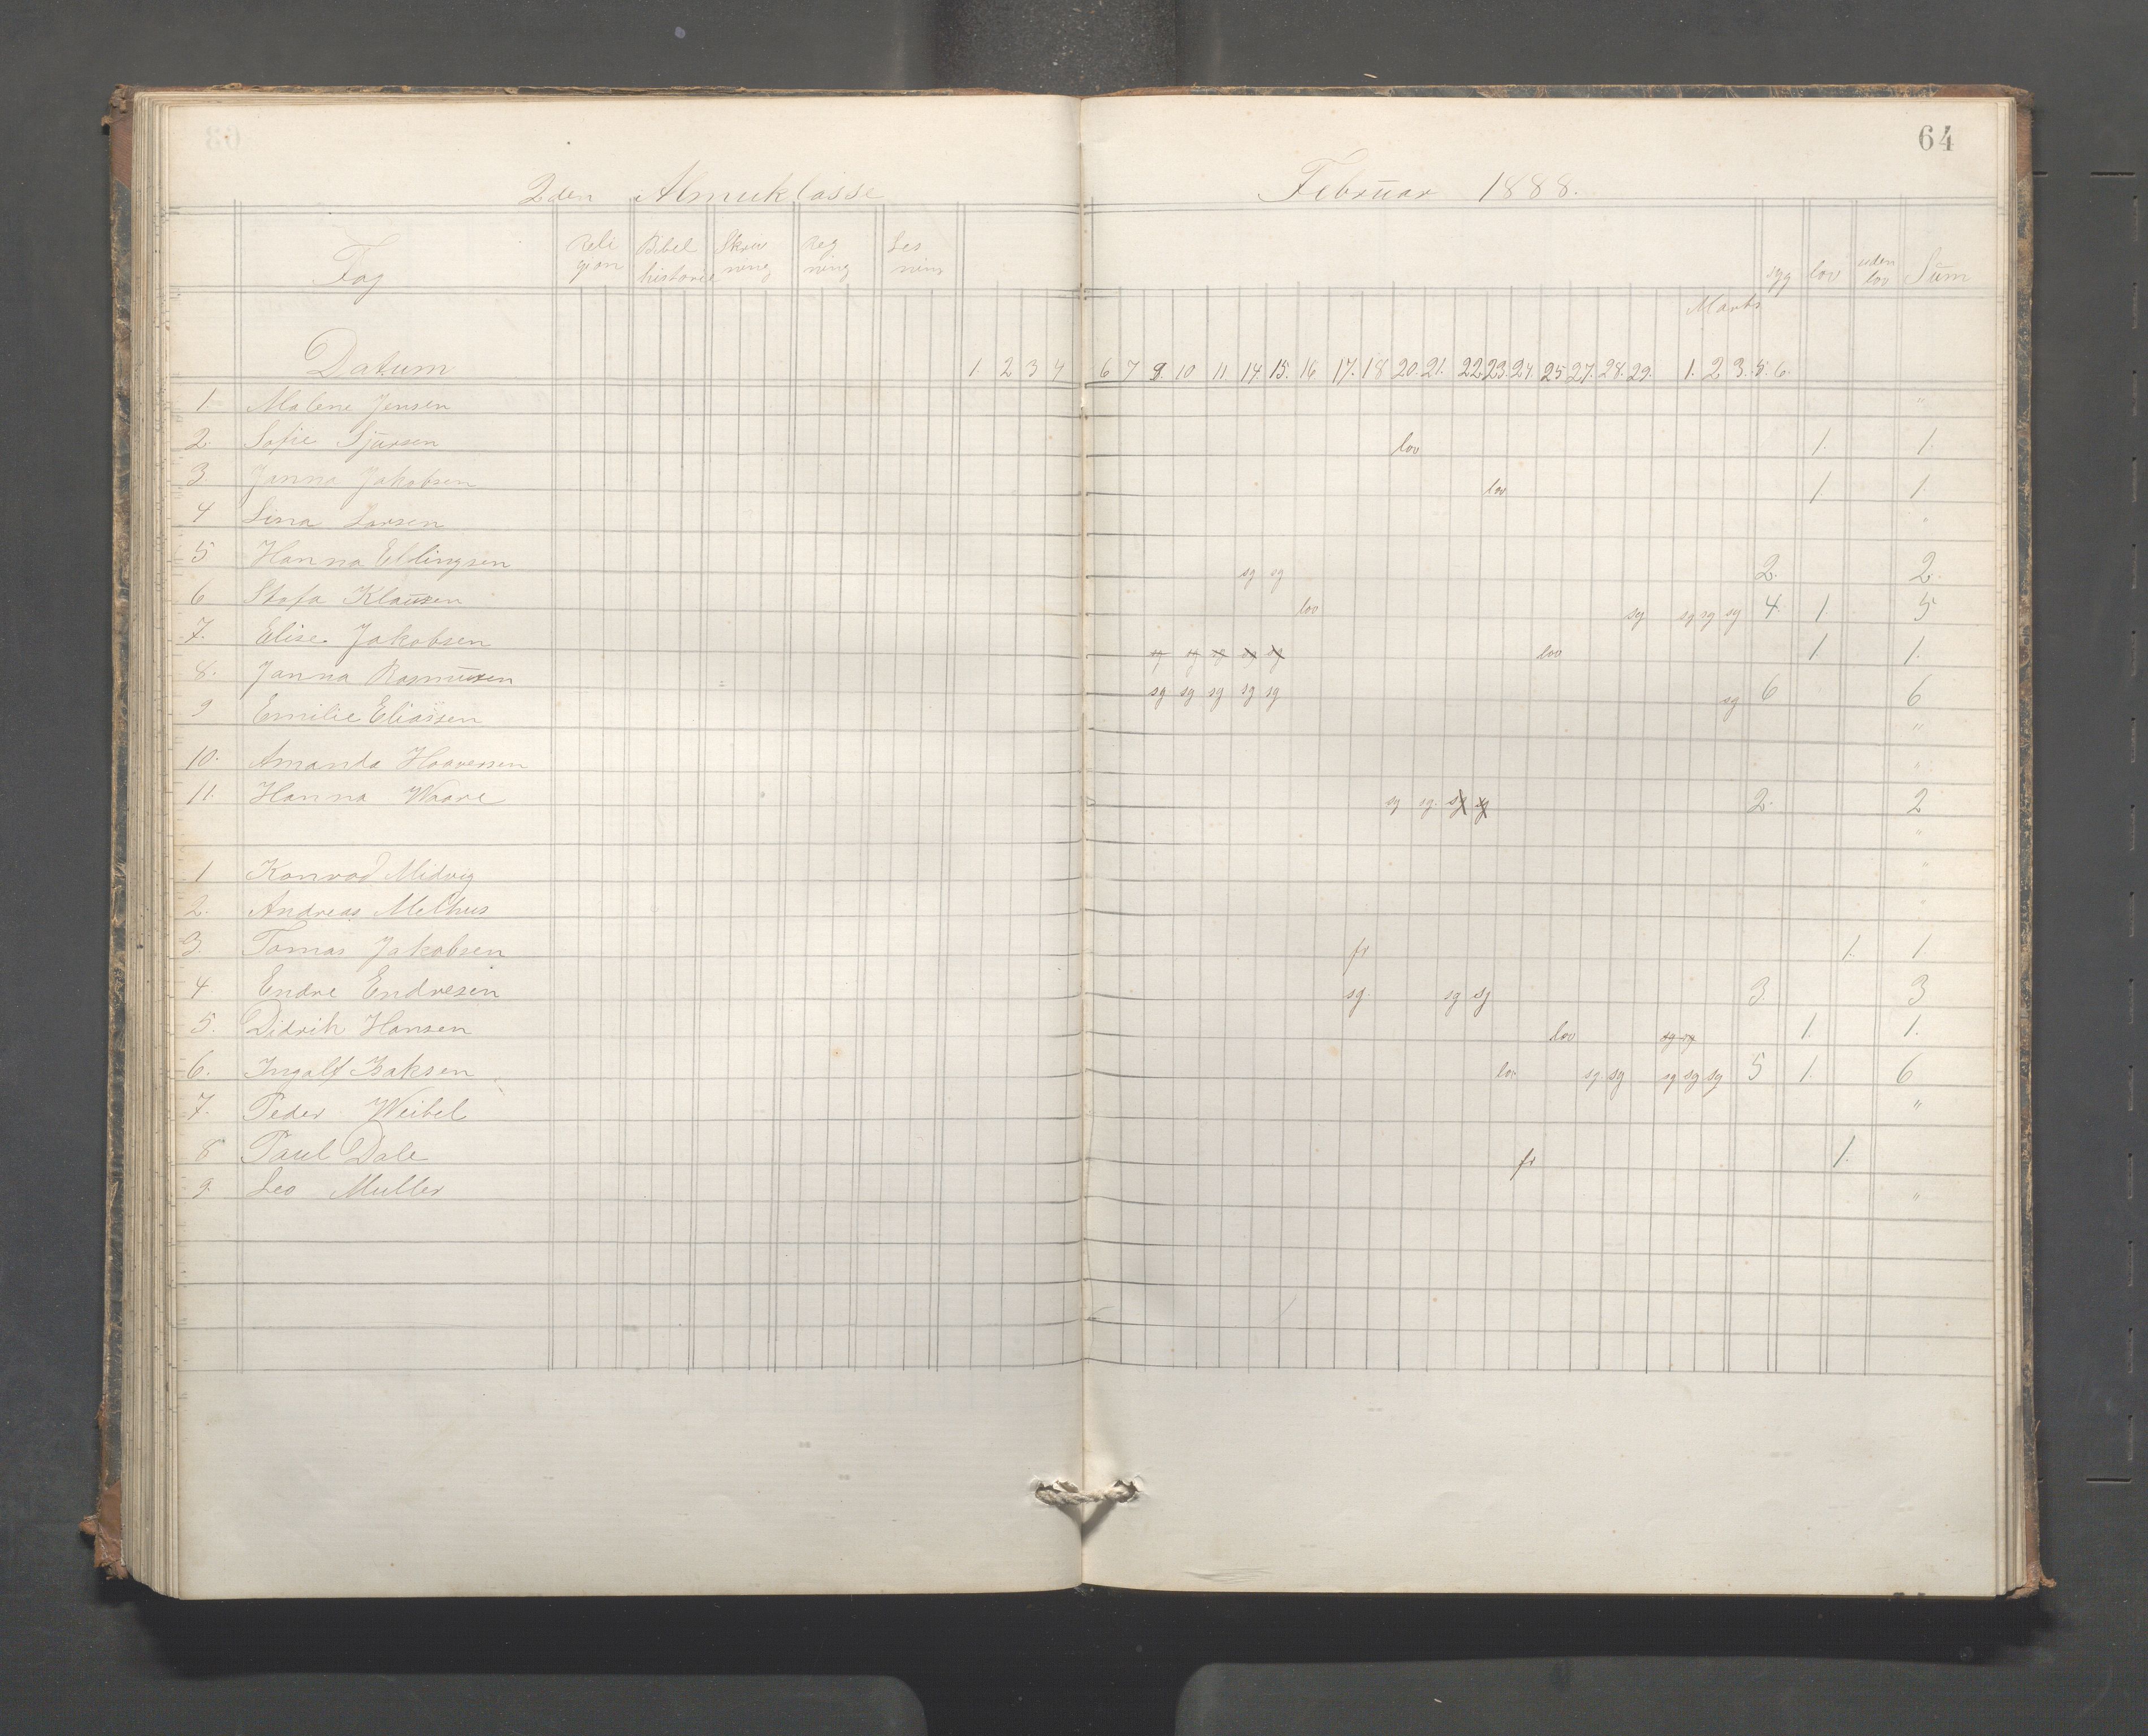 64
2den Almuklasse Februar 1888.
Fag Religion Bibel historie Skrivning Regning Lesning syg lov uden lov Sum
Marts
Datum 1. 2 3 4 6 7 9. 10 11. 14. 15. 16 17. 18 20. 21. 22. 23. 24 25 27. 28. 29. 1. 2 3. 5. 6.
1. Malene Jensen "
2. Sofie Sjursen lov 1. 1.
3 Janna Jakobsen lov 1. 1.
4 Lina Larsen "
5 Hanna Ellingsen sg sg 2. 2.
6 Stofa Klausen lov sg sg sg sg 4. 1 5
7. Elise Jakobsen sg sg sg sg sg lov 1 1.
8. Janna Rasmussen sg sg sg sg sg sg 6 6
9 Emilie Eliassen "
10. Amanda Haaversen "
11. Hanna Waare sg sg. sg sg 2. 2
"
1 Konrad Midvig "
2. Andreas Melhus "
3. Tomas Jakobsen fr 1. 1.
4. Endre Endresen sg. sg sg 3. 3
5. Didrik Hansen lov sg sg 1. 1.
6. Ingolf Isaksen lov sg sg sg sg sg 5 1. 6
7. Peder Weibel "
8 Paul Dale fr 1.
9. Leo Muller "